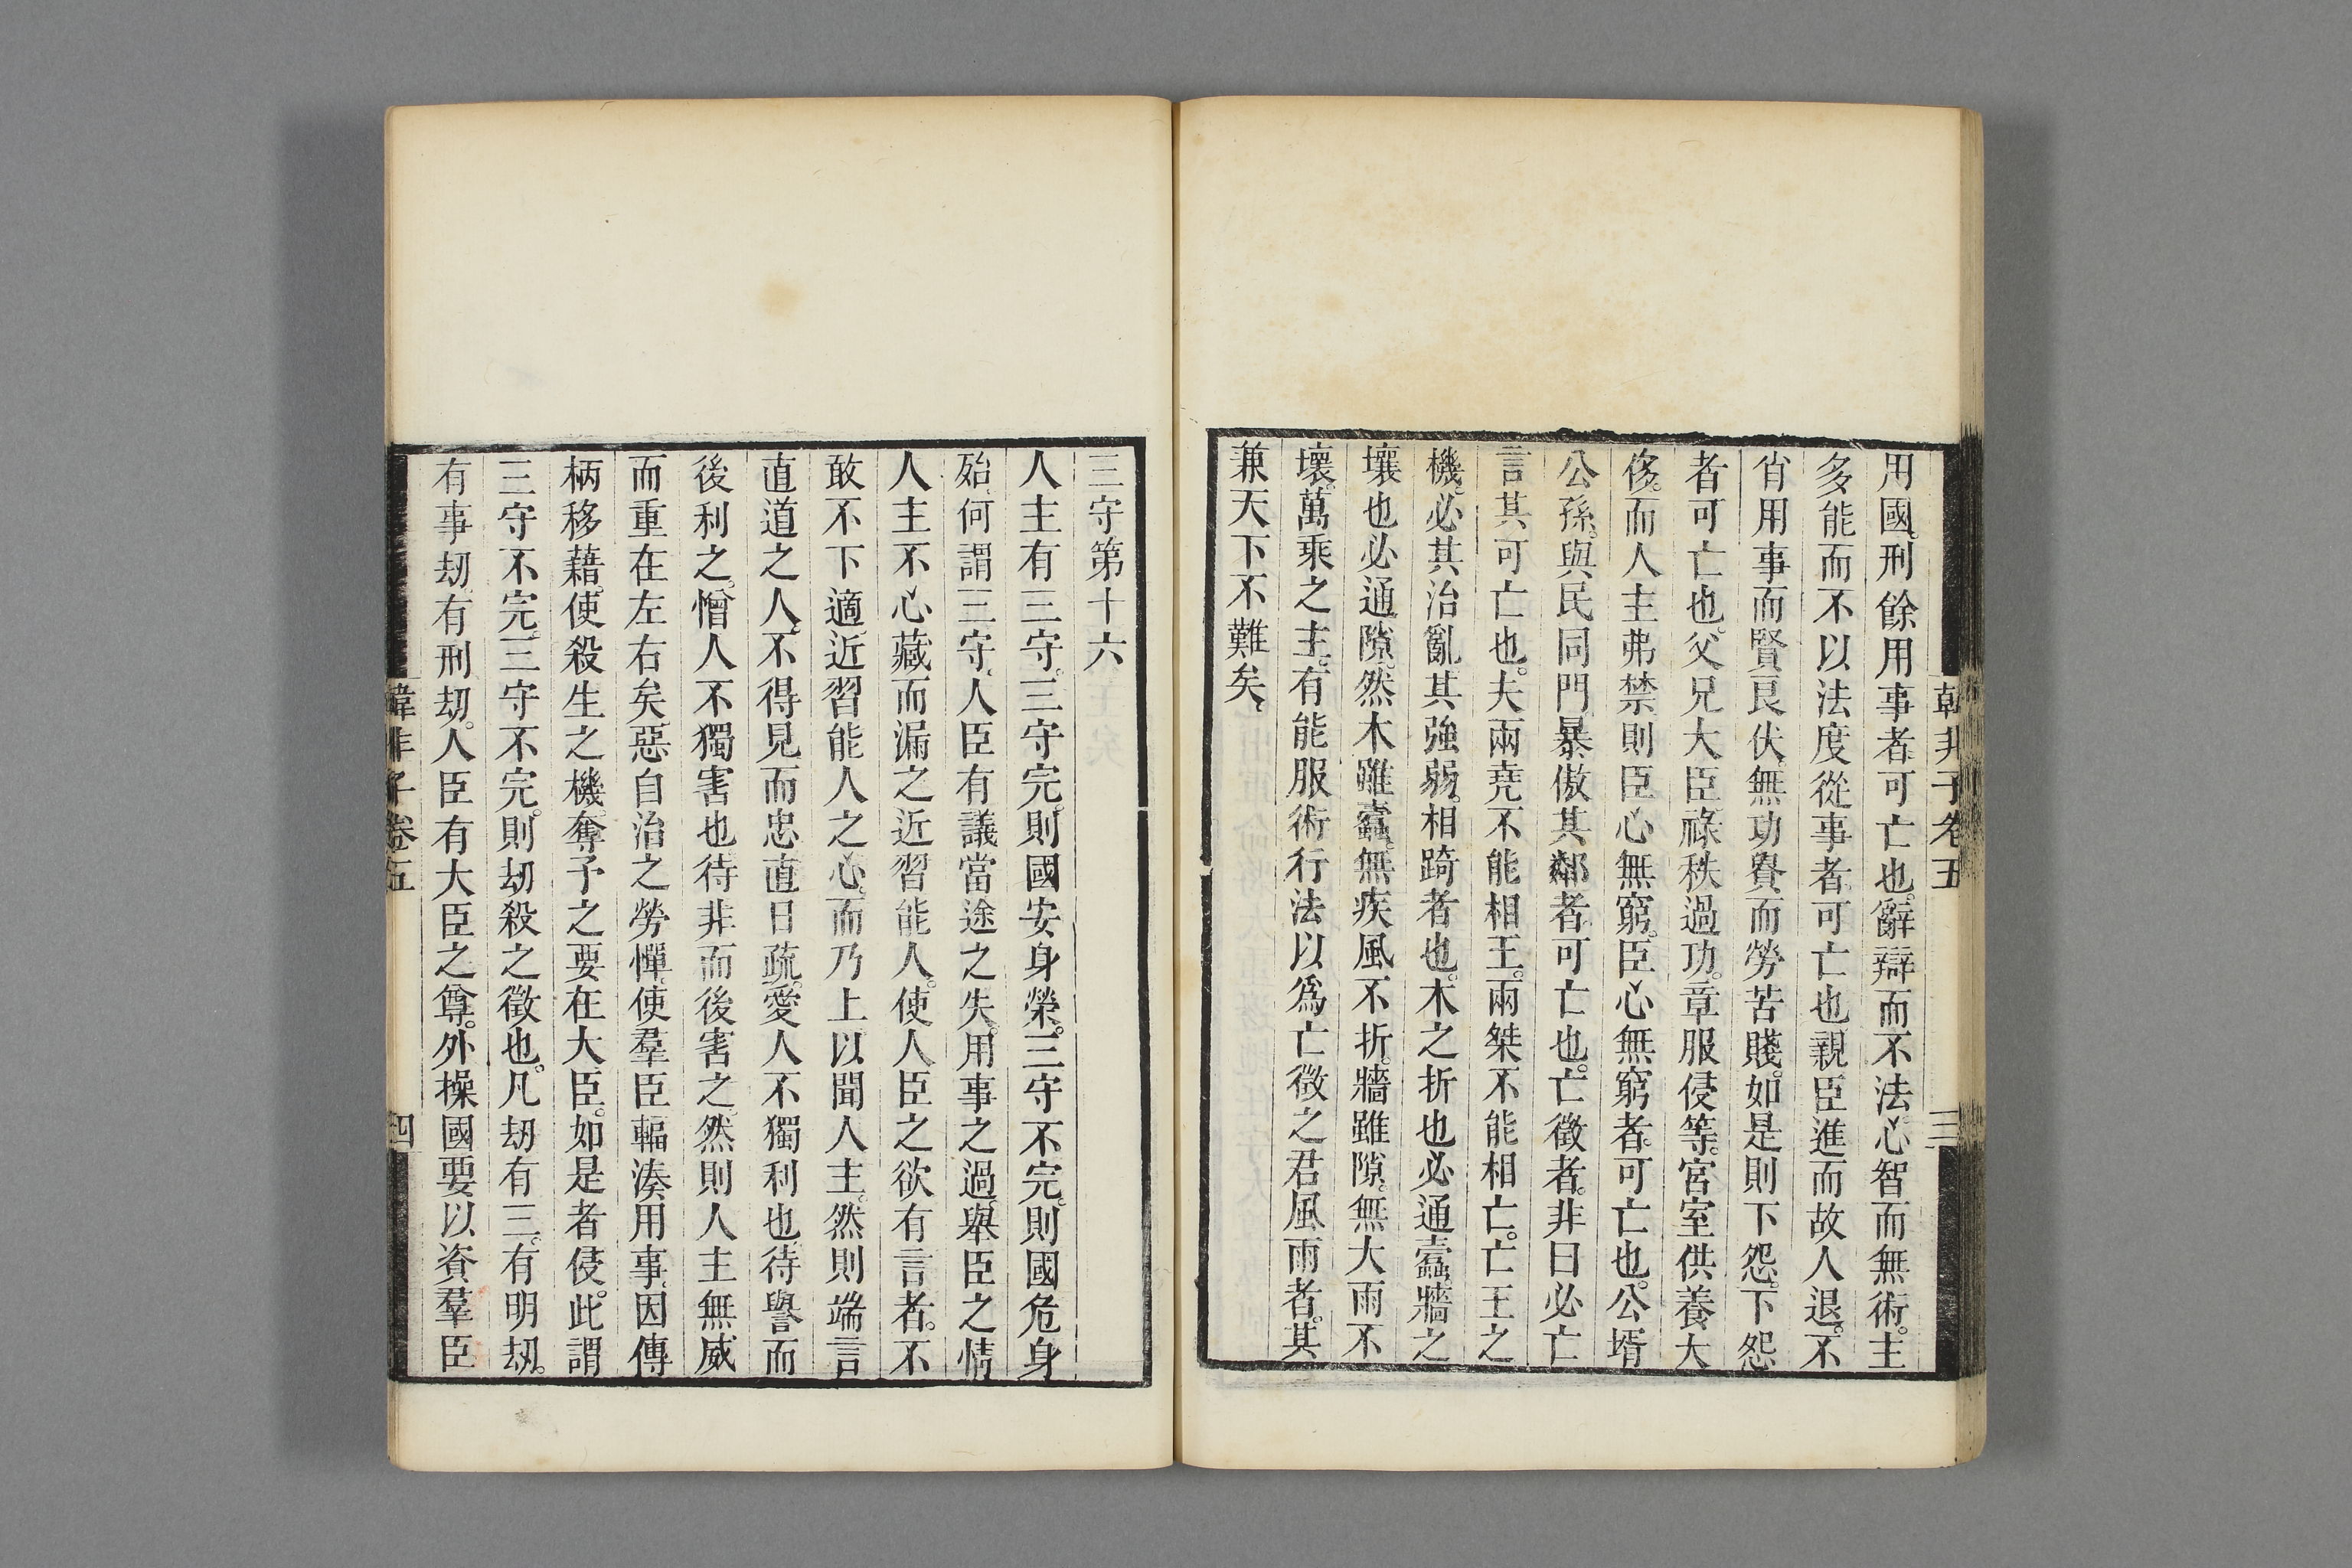 韓非子卷五
三
用國。刑餘用事者。可亡也。辭辯而不法。心智而無術。主
多能而不以法度從事者。可亡也。親臣進而故人退。不
肖用事而賢良伏。無功貴而勞苦賤。如是則下怨。下怨
者可亡也。父兄大臣祿秩過功。章服侵等。宮室供養大
侈。而人主弗禁。則臣心無窮。臣心無窮者。可亡也。公壻
公孫。與民同門。暴傲其鄰者。可亡也。亡徵者。非曰必亡
言其可亡也。夫兩堯不能相王。兩桀不能相亡。亡王之
機。必其治亂其強弱。相踦者也。木之折也必通蠹。牆之
壞也必通隙。然木雖蠹。無疾風不折。牆雖隙。無大雨不
壞。萬乘之主。有能服術行法。以爲亡徵之君風雨者。其
兼天下不難矣。
三守第十六
人主有三守。三守完。則國安身榮。三守不完。則國危身
殆。何謂三守。人臣有議當途之失。用事之過。舉臣之情
人主不心藏而漏之近習能人。使人臣之欲有言者。不
敢不下適近習能人之心。而乃上以聞人主。然則端言
直道之人。不得見而忠直日疏。愛人不獨利也。待譽而
後利之。憎人不獨害也。待非而後害之。然則人主無威
而重在左右矣。惡自治之勞憚。使羣臣輻湊用事。因傳
柄移藉。使殺生之機。奪予之要在大臣。如是者侵。此謂
三守不完。三守不完。則劫殺之徵也。凡劫有三。有明劫。
有事劫。有刑劫。人臣有大臣之尊。外操國要以資羣臣
韓非子卷五
四